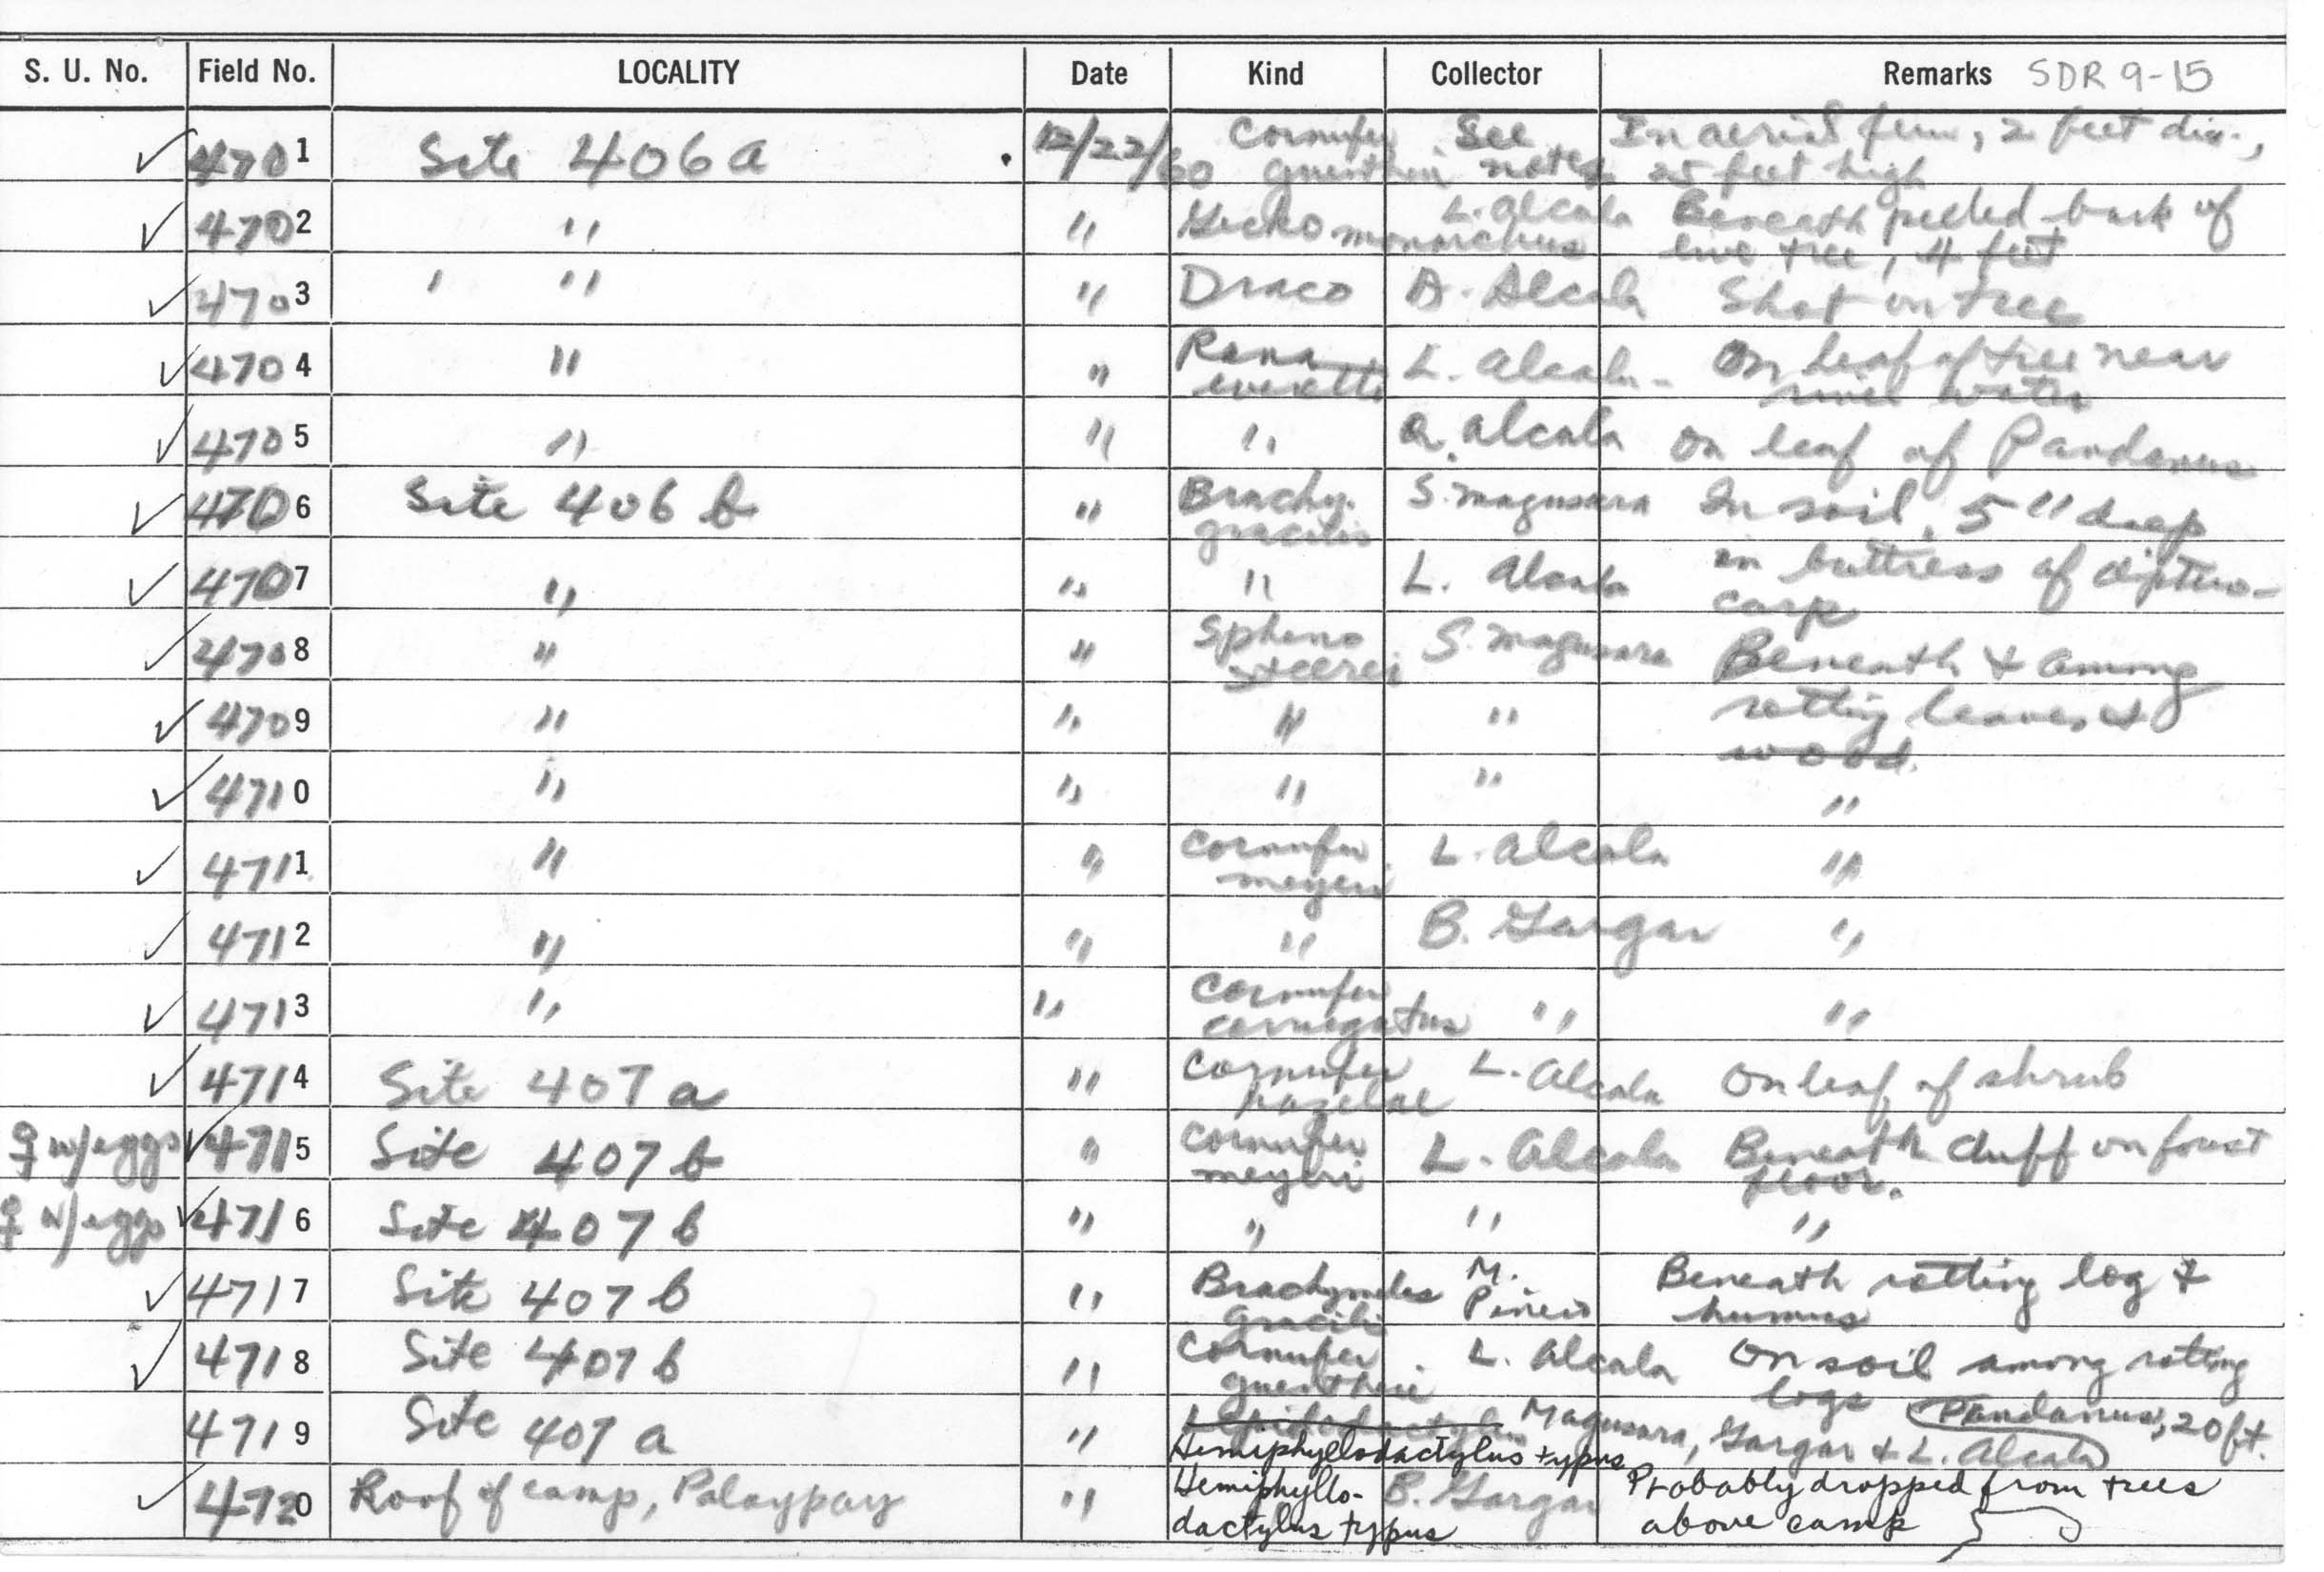 S. U. No. Field No. LOCALITY Date Kind Collector Remarks SDR 9-15
✓ 4701 Site 406a 12/22/60 Cornufer guentheri See notes In aerial fern, 2 feet dia., 25 feet high
✓ 4702 " " Gecko monarchus L. Alcala Beneath peeled bark of live tree, 4 feet
✓ 4703 " " " Draco A. Alcala Shot on tree
✓ 4704 " " Rana everetti L. Alcala On leaf of tree near river water
✓ 4705 " " " A. Alcala On leaf of Pandanus
✓ 4706 Site 406 b " Brachy. gracilis S. Magusara In soil, 5" deep
✓ 4707 " " " L. Alcala in buttress of diptero-carp
✓ 4708 " " Spheno steerei S. Magusara Beneath & among
✓ 4709 " " " " rotting leaves & wood.
✓ 4710 " " " " "
✓ 4711 " " Cornufer meyeri L. Alcala "
✓ 4712 " " " B. Gargar "
✓ 4713 " " Cornufer corrugatus " "
✓ 4714 Site 407 a " Cornufer hazelae L. Alcala On leaf of shrub
♀ w/eggs ✓ 4715 Site 407 b " Cornufer meyeri L. Alcala Beneath duff on forest floor.
♀ w/eggs ✓ 4716 Site 407 b " " " "
✓ 4717 Site 407 b " Brachymeles gracilis M. Beneath rotting log & humus
✓ 4718 Site 407 b " Cornufer guentheri L. Alcala On soil among rotting logs
4719 Site 407 a " Lepidodactylus Hemiphyllodactylus typus Magusara, Gargar & L. Alcala Pandanus, 20 ft.
✓ 4720 Roof of camp, Palaypay " Hemiphyllo-dactylus typus B. Gargar Probably dropped from trees above camp